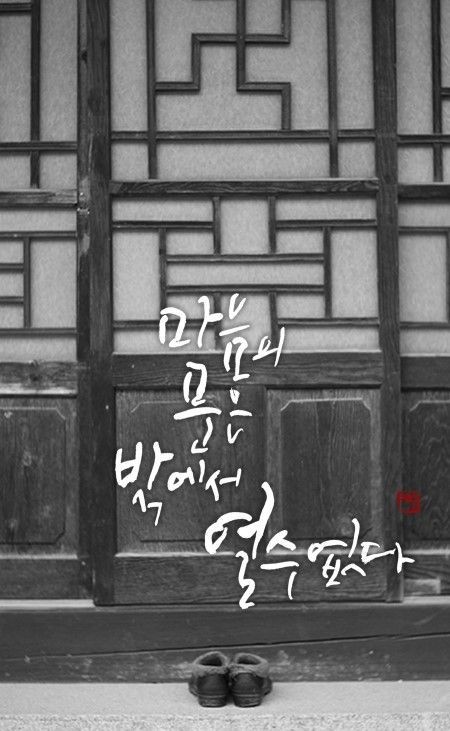 마음의
문은
밖에서
열수없다